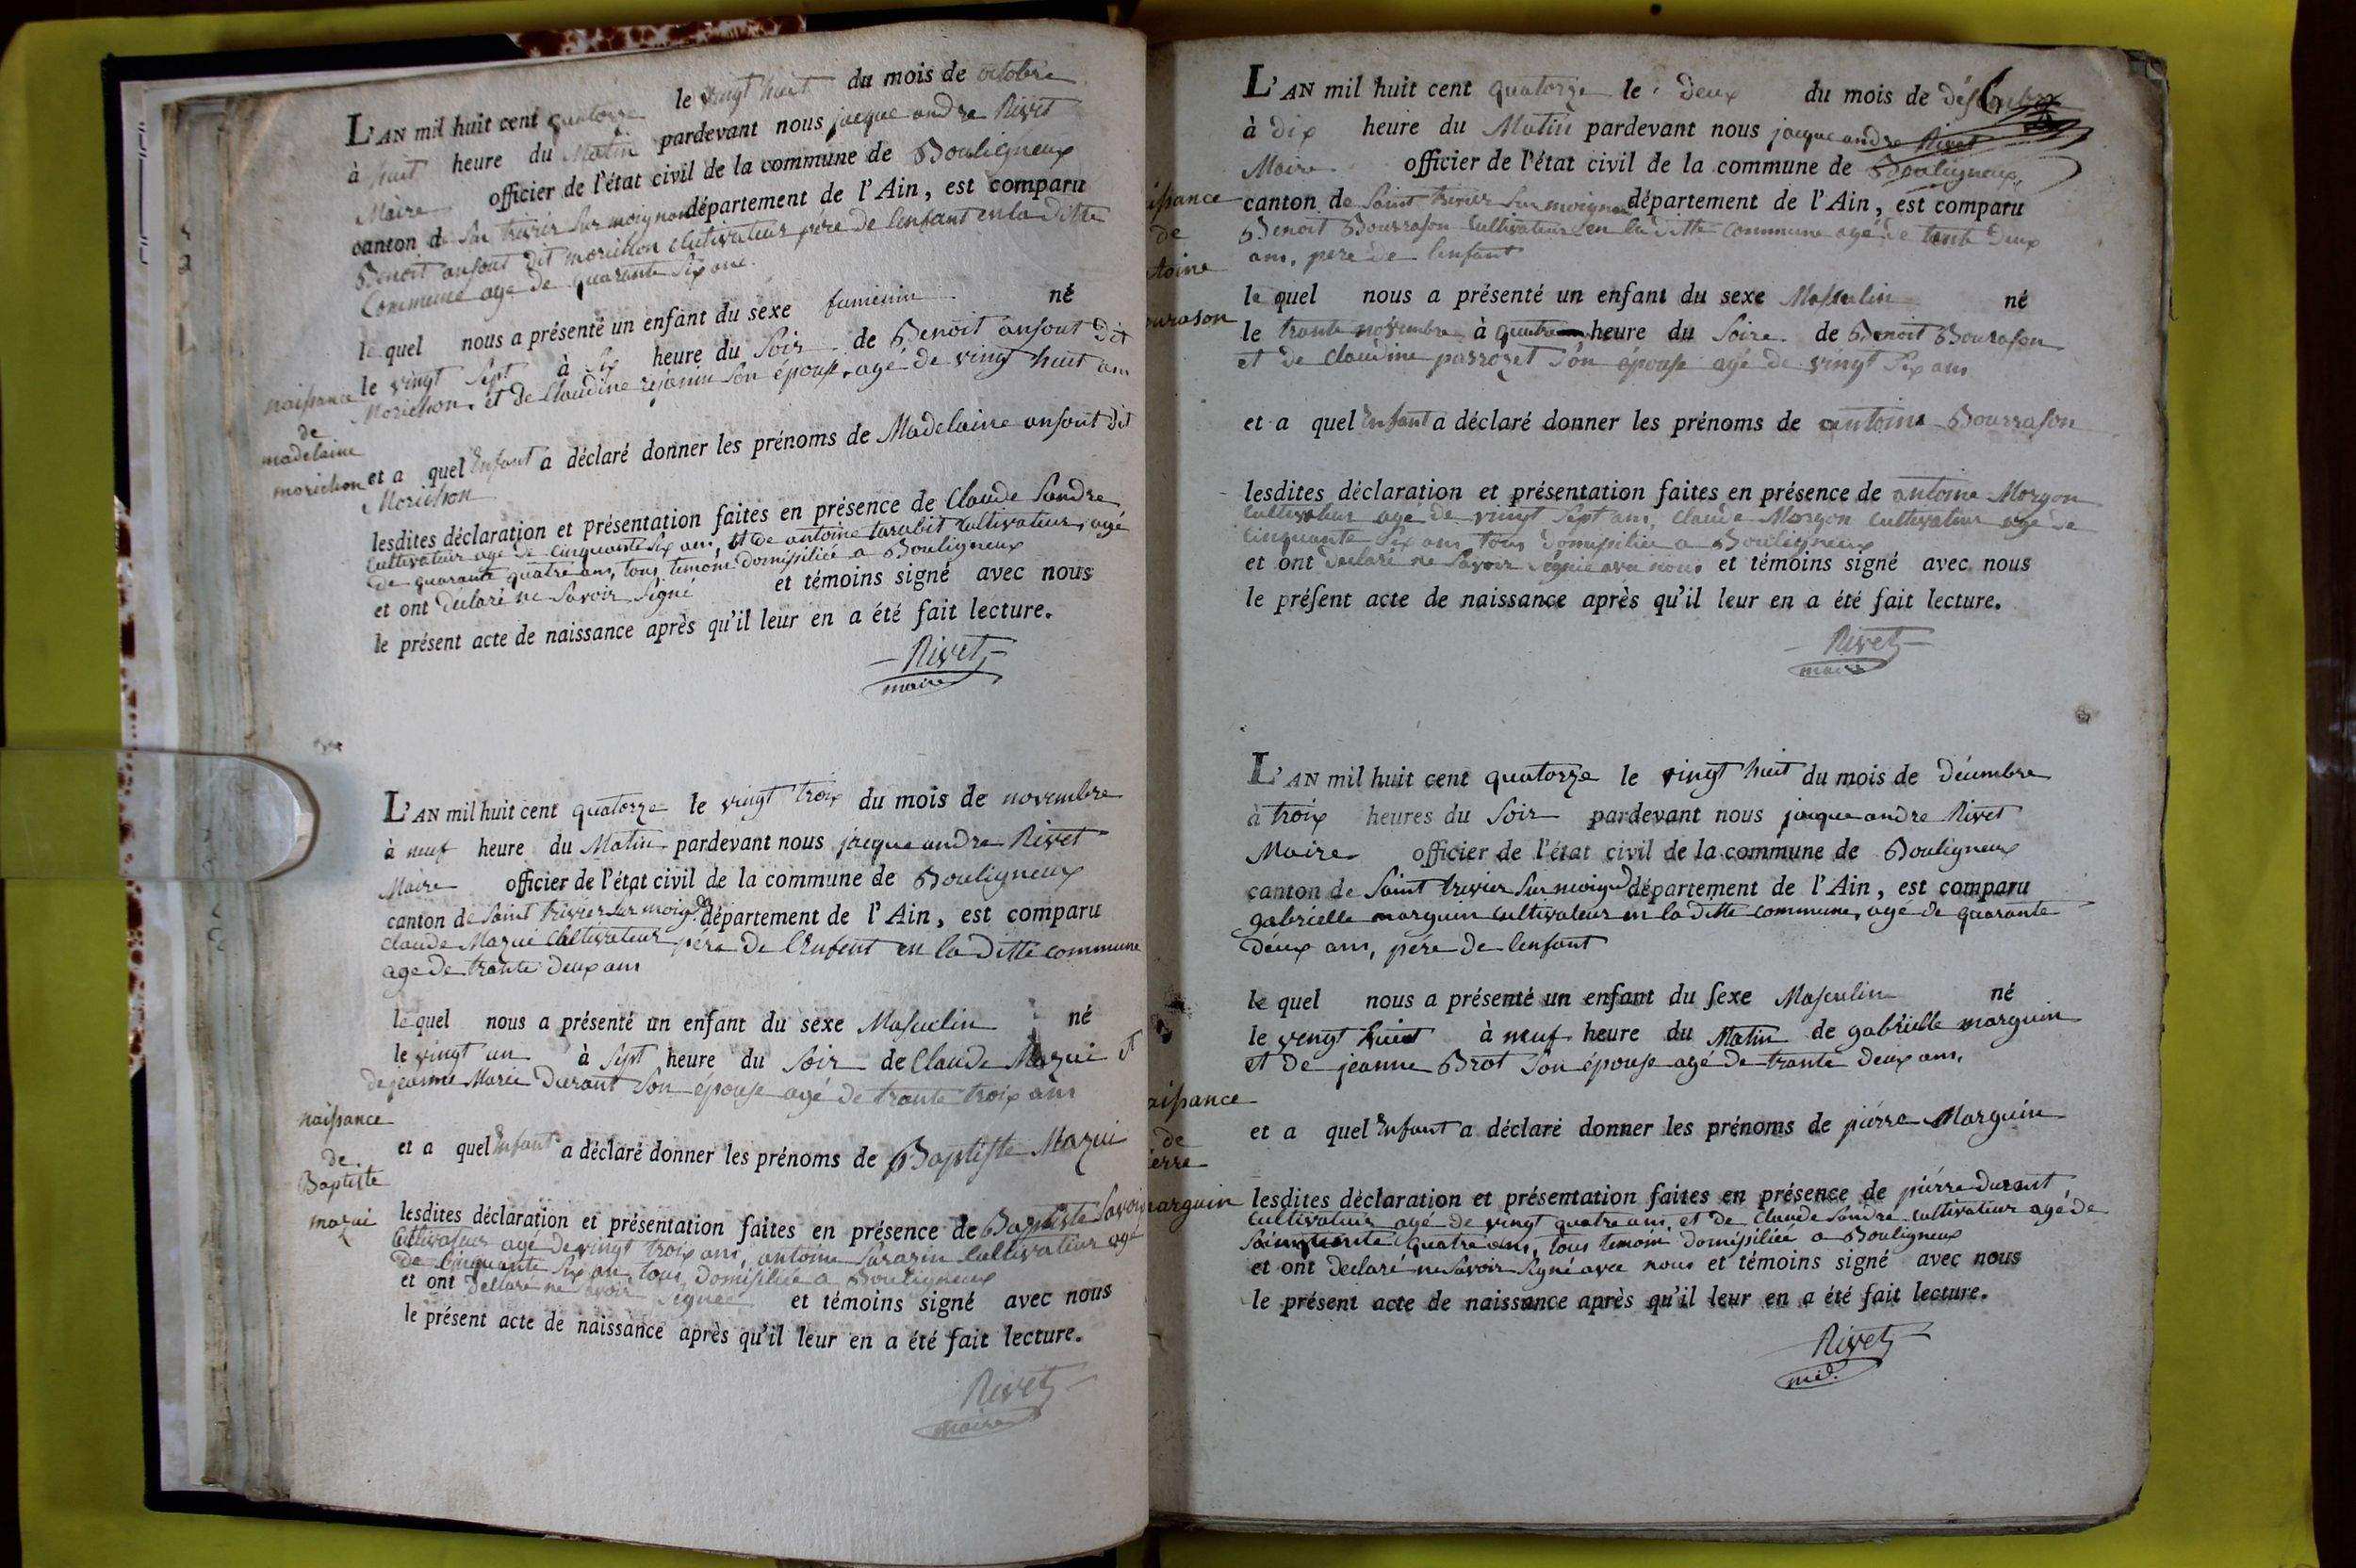 L'AN mil huit cent quatorze le vingt huit du mois de octobre
à huit heure du Matin pardevant nous jacque andre Rivet
Maire officier de l'état civil de la commune de Bouligneux
canton de trivier sur moignan département de l'Ain, est comparu
Benoit ansout dit morichon cultivateur père de lenfant en la ditte
Commune age de quarante six ans.
le quel nous a présenté un enfant du sexe né
le vingt sept à six heure du Soir de Benoit ansout dit
Morichon, et de Claudine son épouse, agé de vingt huit ans
naissance
de
madelaine
morichon
et a quel Enfant a déclaré donner les prénoms de Madelaine ansout dit
Morichon
lesdites déclaration et présentation faites en présence de Claude Sandre
Cultivateur age de Cinquante six ans, et de antoine tarabit Cultivateur, agé
de quarante quatre ans, tous temoins domisiliée a Bouligneux
et ont déclaré ne Savoir Signé et témoins signé avec nous
le présent acte de naissance après qu'il leur en a été fait lecture.
Rivet
maire
L'AN mil huit cent quatorze le vingt trois du mois de novembre
à neuf heure du Matin pardevant nous jacque andre Rivet
Maire officier de l'état civil de la commune de Bouligneux
canton de Saint trivier sur moig département de l'Ain, est comparu
Claude Mazui Cultivateur père de lEnfent en la ditte commune
age de trante deux ans
le quel nous a présenté un enfant du sexe Masculin né
le vingt un à sept heure du Soir de Claude Mazui et
de jeanne Marie Durant Son épouse agé de trante trois ans
naissance
de
Baptiste
mazui
et a quel Enfant a déclaré donner les prénoms de Baptiste Mazui
lesdites déclaration et présentation faites en présence de Baptiste
Cultivateur agé de vingt trois ans, antoine Sarazin Cultivateur agé
de Cinquante six ans tous domisiliée a Bouligneux
et ont déclaré ne savoir signée et témoins signé avec nous
le présent acte de naissance après qu'il leur en a été fait lecture.
Rivet
maire
L'AN mil huit cent quatorze le deux du mois de
à dix heure du Matin pardevant nous jacque andre Rivet
Maire officier de l'état civil de la commune de Bouligneux
canton de Saint trivier sur moignan département de l'Ain, est comparu
Benoit Bourrason Cultivateur en la ditte Commune agé de trente deux
ans, pere de lenfant
le quel nous a présenté un enfant du sexe Masculin né
le trante novembre à quatre heure du Soire de Benoit Bourason
et de Claudine parrozet Son épouse agé de vingt six ans
issance
de
toine
ourason
et a quel Enfant a déclaré donner les prénoms de antoine Bourrason
lesdites déclaration et présentation faites en présence de antoine Morgon
Cultivateur agé de vingt sept ans, Claude Morgon Cultivateur agé de
Cinquante six ans tous domisiliée a Bouligneux
et ont declaré ne Savoir nous et témoins signé avec nous
le présent acte de naissance après qu'il leur en a été fait lecture.
Rivet
maire
L'AN mil huit cent quatorze le vingt huit du mois de
à trois heures du Soir pardevant nous jacque andre Rivet
Maire officier de l'état civil de la commune de Bouligneux
canton de Saint trivier sur département de l'Ain, est comparu
gabrielle marguin cultivateur en la ditte commune, agé de quarante
deux ans, père de lenfant
le quel nous a présenté un enfant du sexe Masculin né
le vengt huit à neuf heure du Matin de gabrielle marguin
et de jeanne Brot Son épouse agé de trante deux ans.
aissance
de
ierre
marguin
et a quel Enfant a déclaré donner les prénoms de pierre Marguin
lesdites déclaration et présentation faites en présence de pierre Durant
Cultivateur agé de vingt quatre ans, et de Claude Sandre Cultivateur agé de
quatre ans, tous temoins domisiliée a Bouligneux
et ont declaré ne Savoir Signé avec nous et témoins signé avec nous
le présent acte de naissance après qu'il leur en a été fait lecture.
Rivet